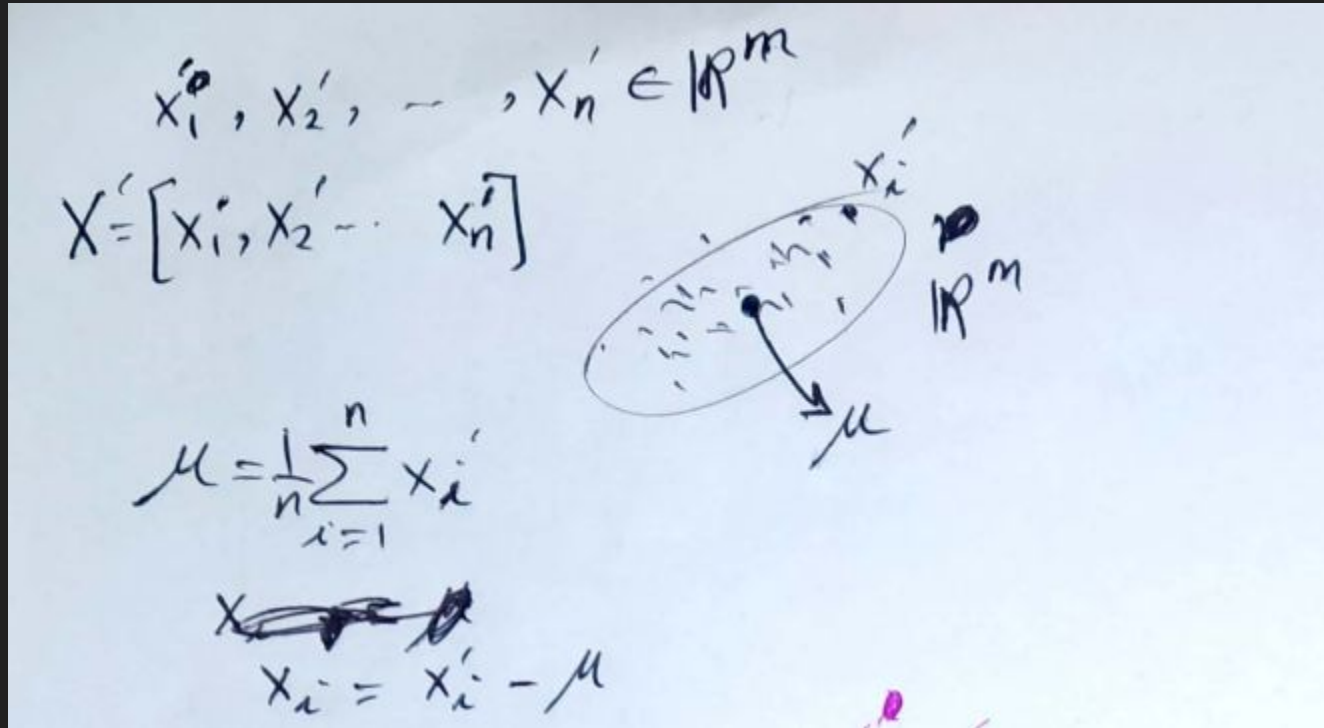 x₁′, x₂′, - - , xₙ′ ∈ ℝᵐ
X′ = [x₁′, x₂′ - - · xₙ′]
xᵢ′
ℝᵐ
μ
μ = 1/n ∑ᵢ₌₁ⁿ xᵢ′
xᵢ = xᵢ′ - μ